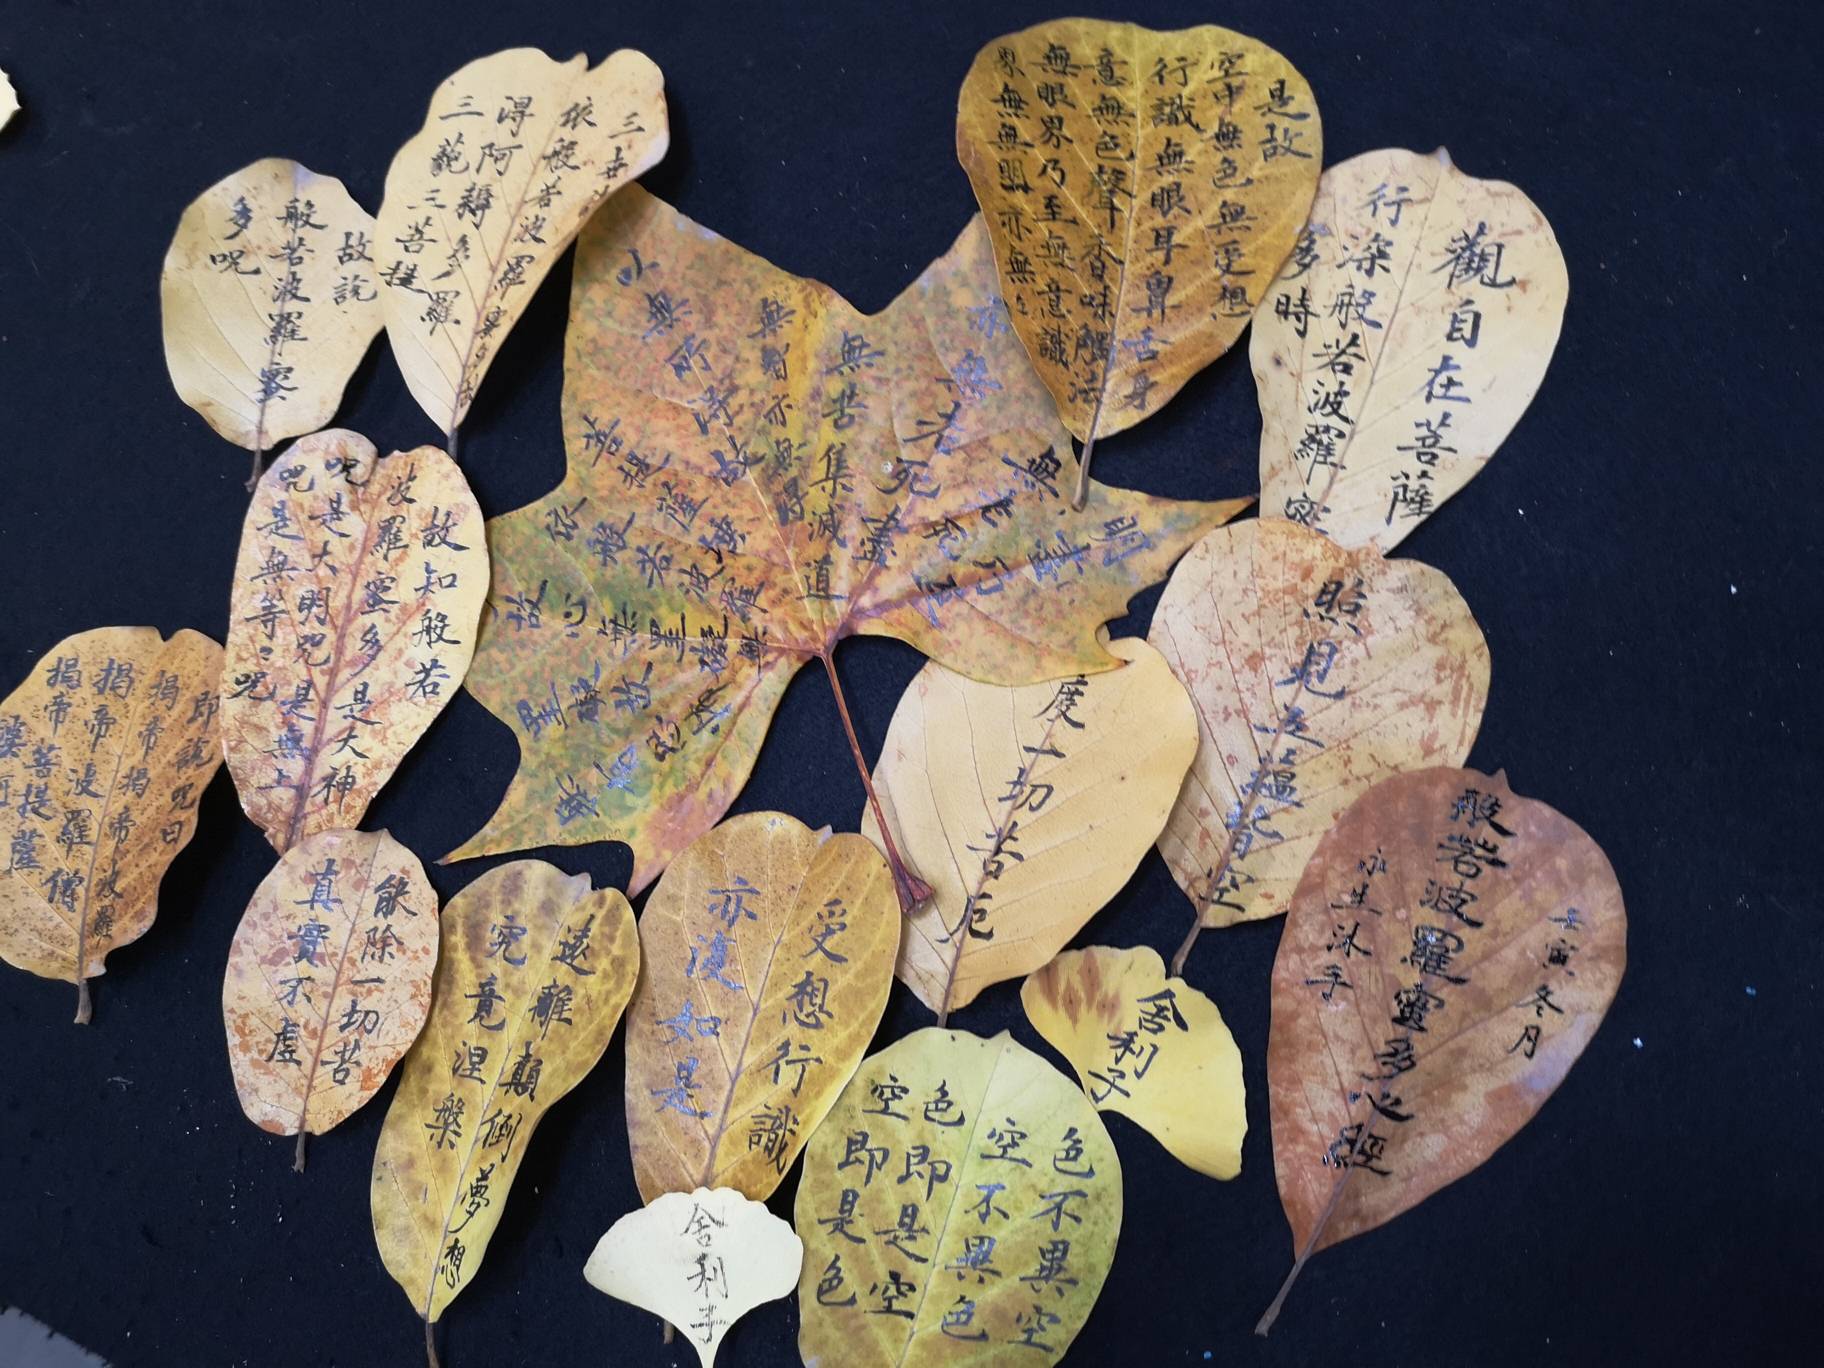 般若波羅蜜多心經
壬寅冬月
沐手
觀自在菩薩
行深般若波羅蜜
多時
照見五蘊皆空
度一切苦厄
舍利子
色不異空
空不異色
色即是空
空即是色
受想行識
亦復如是
舍利子
是故
空中無色無受想
行識無眼耳鼻舌身
意無色聲香味觸法
無眼界乃至無意識
界無無明亦無
無明盡
亦無老死盡
無苦集滅道
無智亦無得
以無所得故
菩提薩埵
依般若波羅蜜
故心無罣礙
罣礙故
無有恐怖
遠離顛倒夢想
究竟涅槃
三世
依般若波羅蜜多故
得阿耨多羅
三藐三菩提
故知般若
波羅蜜多是大神
呪是大明呪是無上
呪是無等〻呪
能除一切苦
真實不虛
故說
般若波羅蜜
多呪
即說呪曰
揭帝揭帝波羅
揭帝波羅僧
揭帝菩提薩
婆